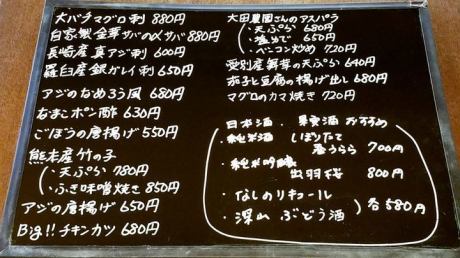 大バチマグロ刺 880円
自家製 金華サバの〆サバ 880円
長崎産 真アジ刺 600円
羅臼産 銀ガレイ刺 650円
アジのなめろう風 680円
なまこポン酢 630円
ごぼうの唐揚げ 550円
熊本産 竹の子
・天ぷら 780円
・ふき味噌焼き 850円
アジの唐揚げ 650円
Big!! チキンカツ 680円
太田農園さんのアスパラ
・天ぷら 680円
・塩ゆで 650円
・ベーコン炒め 720円
愛別産 舞茸の天ぷら 640円
茄子と豆腐の揚げ出し 680円
マグロのカマ焼き 720円
日本酒・果実酒 おすすめ
・純米酒 しぼりたて
春うらら 700円
・純米吟醸
出羽桜 800円
・なしのリキュール
・深山 ぶどう酒
各580円